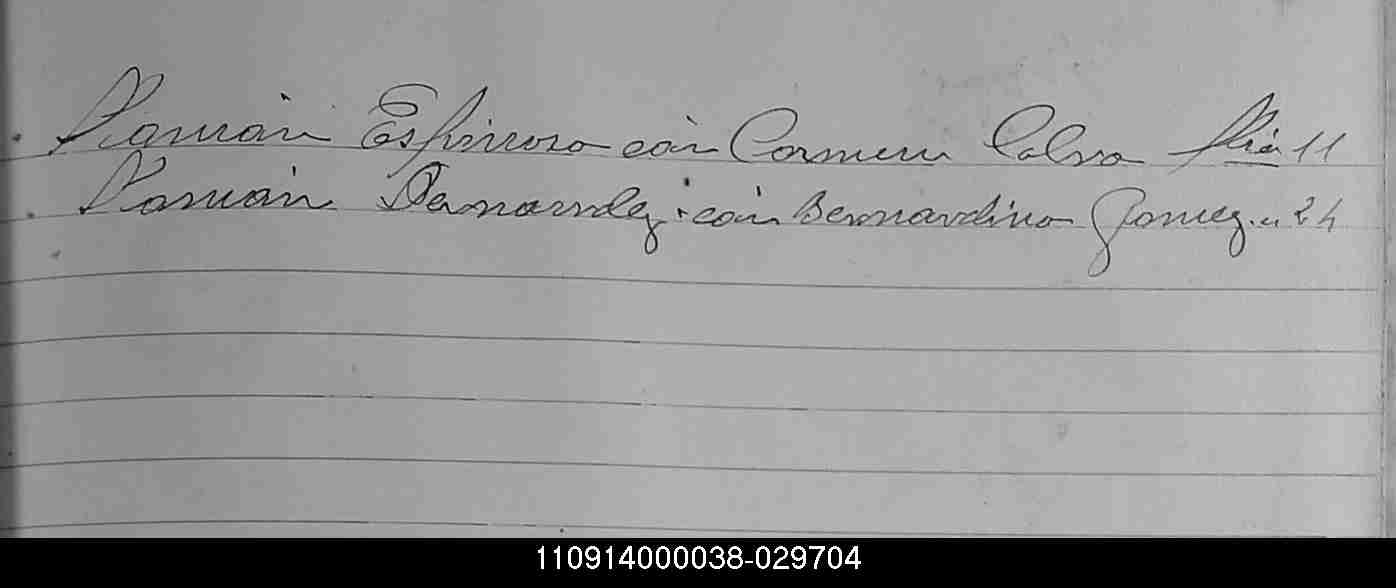 Román Espinosa con Carmen Calvo
Román Fernandez con Bernardino Gomez " 24
110914000038-029704